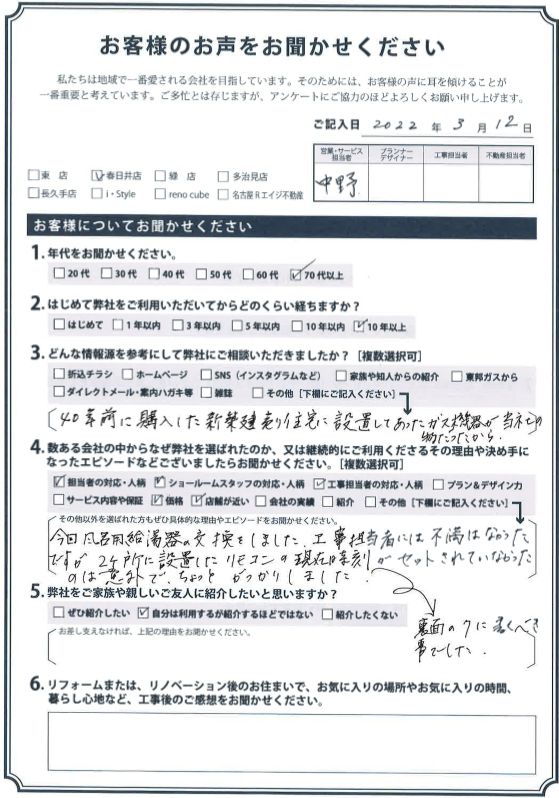 お客様のお声をお聞かせください
私たちは地域で一番愛される会社を目指しています。そのためには、お客様の声に耳を傾けることが
一番重要と考えています。ご多忙とは存じますが、アンケートにご協力のほどよろしくお願い申し上げます。
ご記入日 2022 年 3 月 12 日
営業・サービス担当者 プランナーデザイナー 工事担当者 不動産担当者
中野
□東 店 ☑春日井店 □緑 店 □多治見店
□長久手店 □i・Style □reno cube □名古屋Rエイジ不動産
お客様についてお聞かせください
1. 年代をお聞かせください。
□20代 □30代 □40代 □50代 □60代 ☑70代以上
2. はじめて弊社をご利用いただいてからどのくらい経ちますか？
□はじめて □1年以内 □3年以内 □5年以内 □10年以内 ☑10年以上
3. どんな情報源を参考にして弊社にご相談いただきましたか？［複数選択可］
□折込チラシ □ホームページ □SNS（インスタグラムなど） □家族や知人からの紹介 □東邦ガスから
□ダイレクトメール・案内ハガキ等 □雑誌 □その他［下欄にご記入ください］
40年前に購入した新築建売り住宅に設置してあったガス機器が当社の
物だったから.
4. 数ある会社の中からなぜ弊社を選ばれたのか、又は継続的にご利用くださるその理由や決め手に
なったエピソードなどございましたらお聞かせください。［複数選択可］
☑担当者の対応・人柄 ☑ショールームスタッフの対応・人柄 ☑工事担当者の対応・人柄 □プラン＆デザイン力
□サービス内容や保証 ☑価格 ☑店舗が近い □会社の実績 □紹介 □その他［下欄にご記入ください］
その他以外を選ばれた方もぜひ具体的な理由やエピソードをお聞かせください。
今回風呂用給湯器の交換をしました. 工事担当者には不満はなかった
ですが 2ヶ所に設置したリモコンの現在時刻がセットされていなかった
のは意外で、ちょっと がっかりしました.
5. 弊社をご家族や親しいご友人に紹介したいと思いますか？
□ぜひ紹介したい ☑自分は利用するが紹介するほどではない □紹介したくない
お差し支えなければ、上記の理由をお聞かせください。
裏面の7に書くべき
事でした.
6. リフォームまたは、リノベーション後のお住まいで、お気に入りの場所やお気に入りの時間、
暮らし心地など、工事後のご感想をお聞かせください。